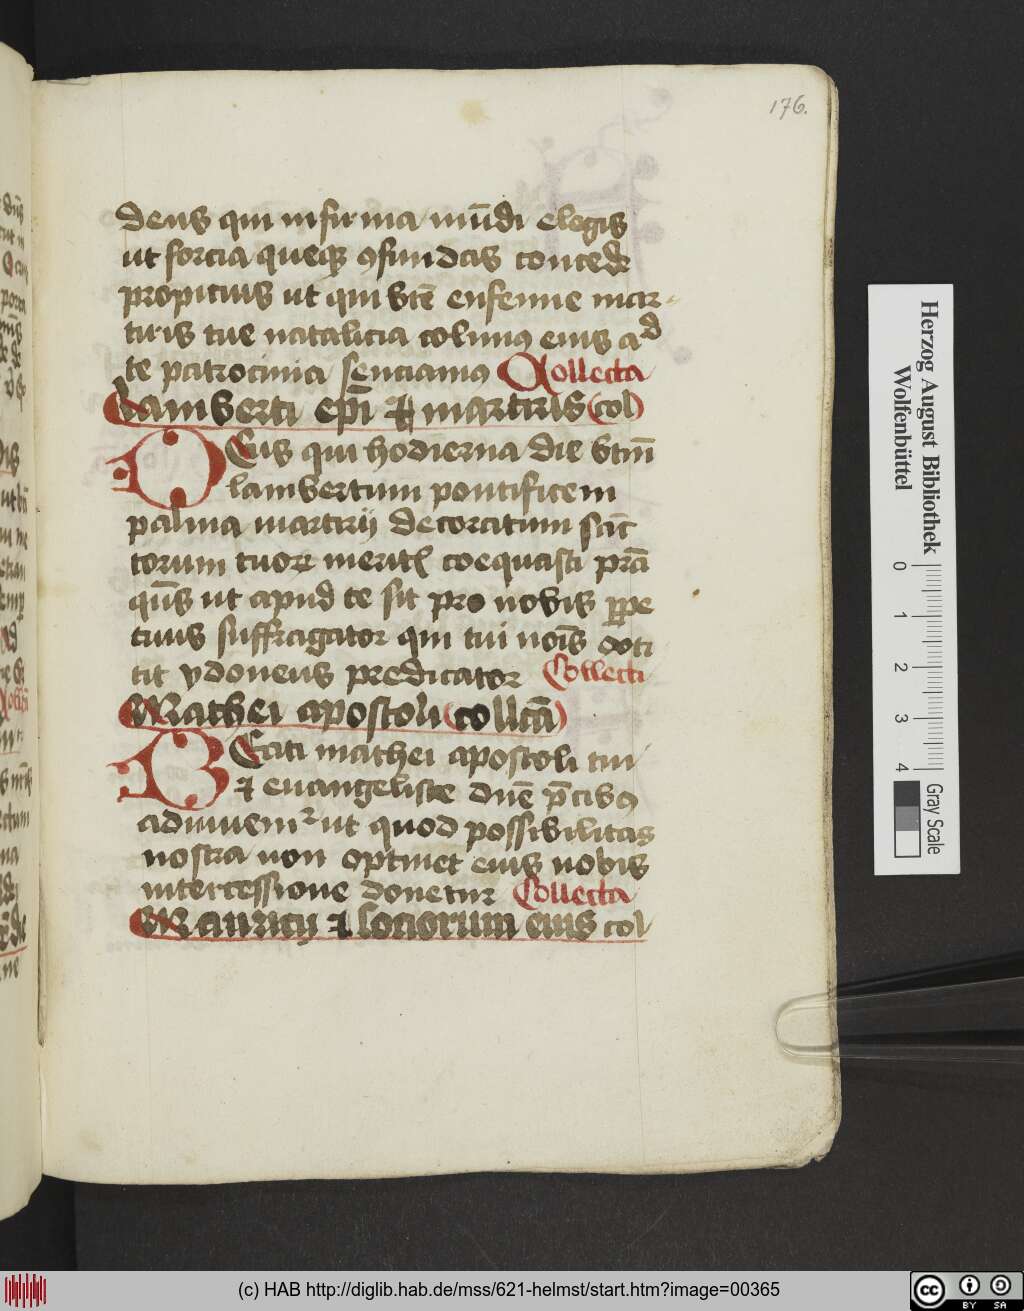 176.
deus qui infirma mūdi elegis
ut forcia queqꝫ ꝯfundas concede
propicius ut qui btē eufemie mar-
tiris tue natalicia colimꝰ eius ad
te patrocinia senciamꝰ Collecta
Lamberti ep̄i et martiris (col)
DEus qui hodierna die btm̄
lambertum pontificem
palma martirij decoratum sāc
torum tuoꝝ meritꝭ coequasti p̄ta
qm̄s ut apud te sit pro nobis ꝑpe
tuus suffragator qui tui noīs exti
tit ydoneus predicator Collecta
Mathei apostoli (collcā)
BEati mathei apostoli tui
et euangeliste dn̄e p̄cibꝰ
adiuuemͬ ut quod possibilitas
nostra non optinet eius nobis
intercessione donetur Collecta
Mauricij et sociorum eius col
Herzog August Bibliothek
Wolfenbüttel
0 1 2 3 4
Gray Scale
(c) HAB http://diglib.hab.de/mss/621-helmst/start.htm?image=00365
cc BY SA